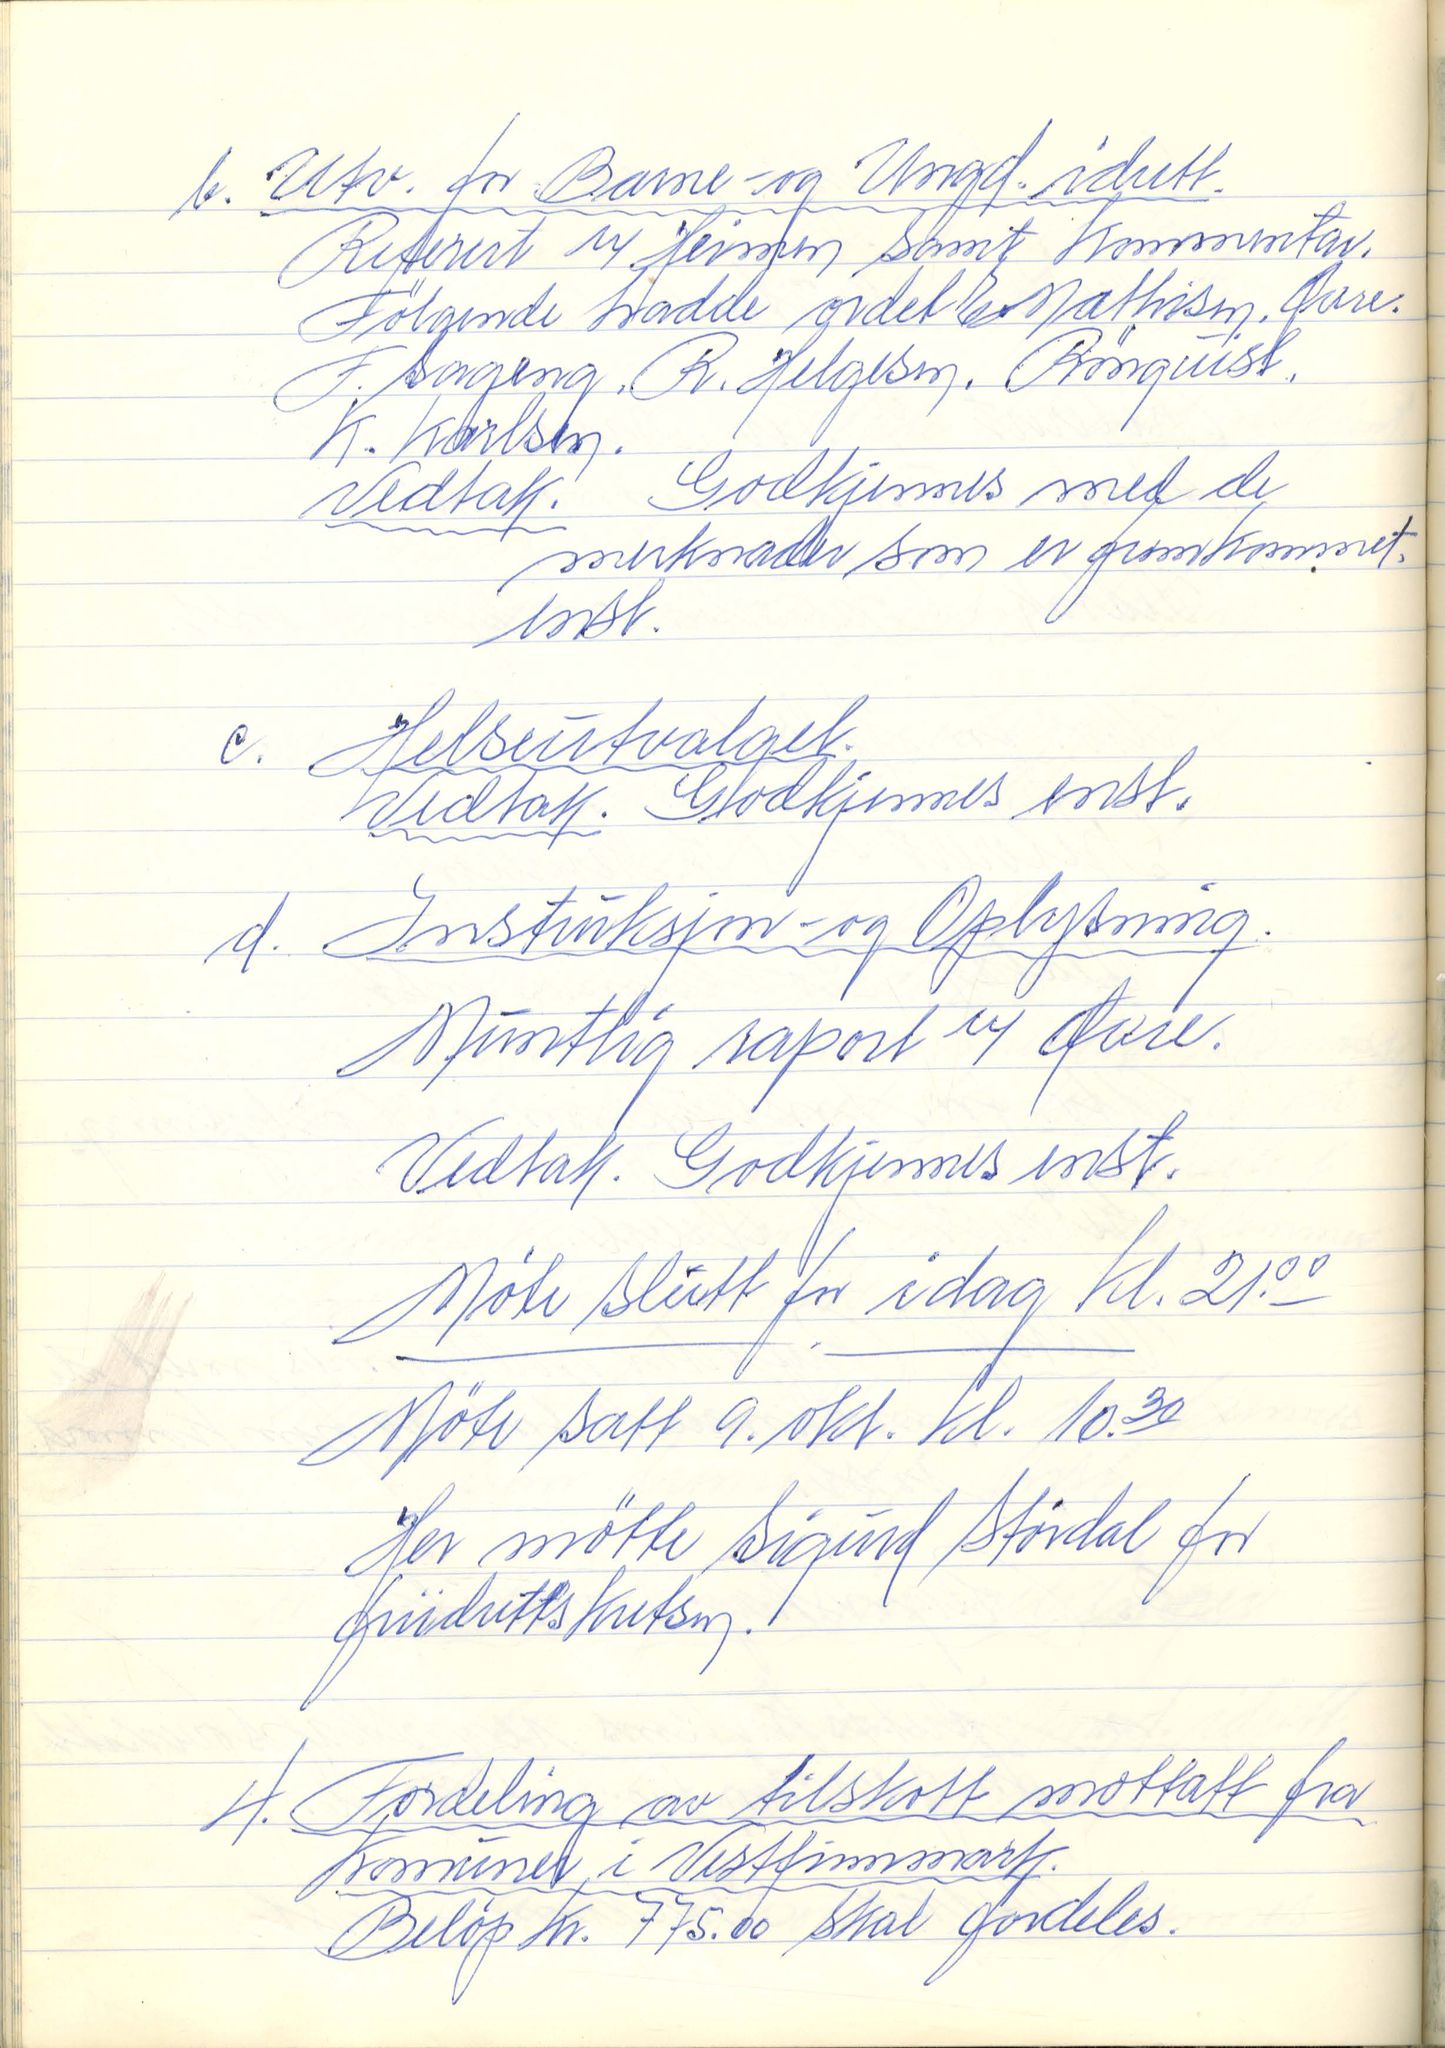 b. Utv. for Barne-og Ungd. idrett.
Referert v/ Heimen samt Kommentar.
Følgende hadde ordet E. Mathisen,
F. Sageng, R. Helgesen, Rönquist,
K. Karlsen.
Vedtak. Godkjennes med de
merknader som er fremkommet.
enst.
c. Helseutvalget.
Vedtak. Godkjennes enst.
d. Instruksjon-og Oplysning.
Muntlig raport v/
Vedtak. Godkjennes enst.
Möte slutt for idag kl. 21.00
Möte satt 9. okt. kl. 10.30
Her møtte Sigurd Størdal for
friidrettskretsen.
4. Fordeling av tilskott mottatt fra
Komuner i Vestfinnmark.
Beløp kr. 775.00 skal fordeles.